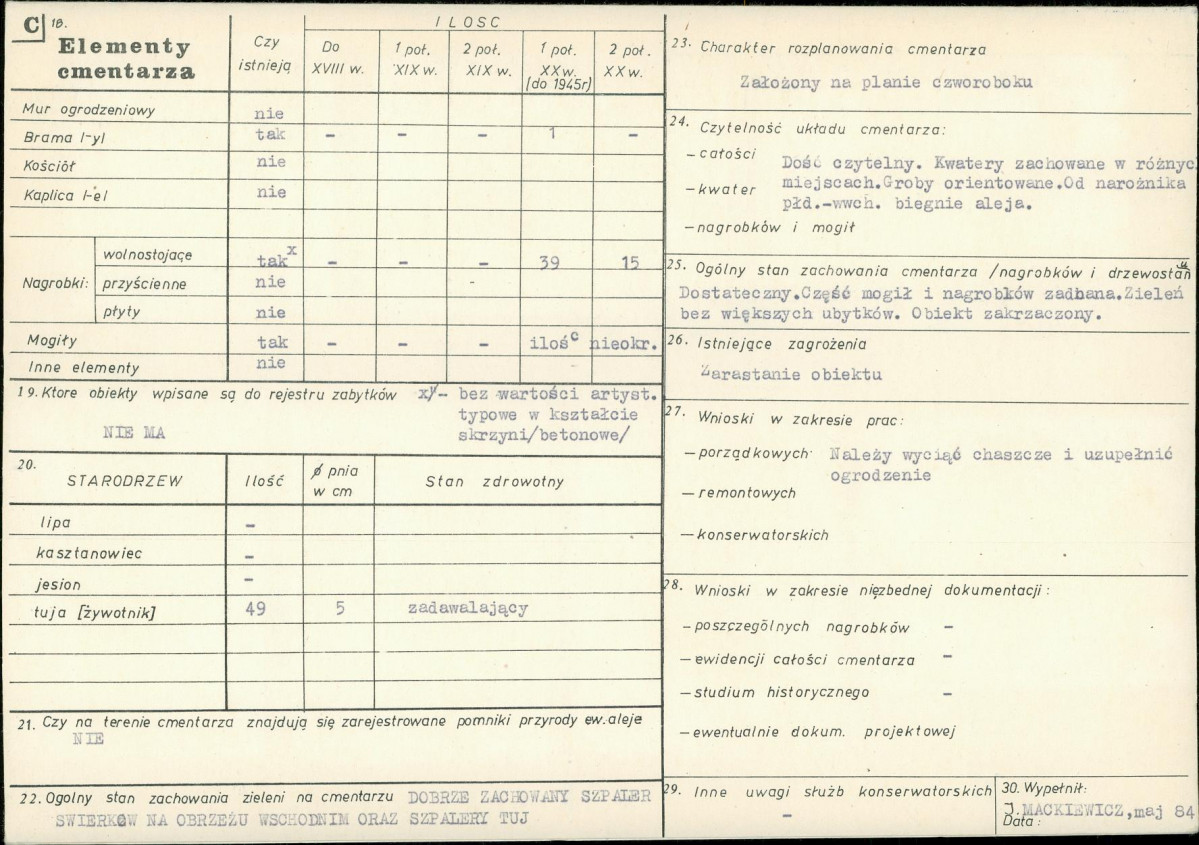 C 18.
Elementy
cmentarza
Czy
istnieją
ILOSC
Do
XVIII w.
1 poł.
XIX w.
2 poł.
XIX w.
1 poł.
XX w.
(do 1945r)
2 poł.
XX w.
Mur ogrodzeniowy nie
Brama l-yl tak - - - 1 -
Kościół nie
Kaplica l-el nie
Nagrobki:
wolnostojące takx - - - 39 15
przyścienne nie
płyty nie
Mogiły tak - - - ilośc nieokr.
Inne elementy nie
19. Ktore obiekty wpisane są do rejestru zabytków x/- bez wartości artyst.
typowe w kształcie
NIE MA skrzyni/betonowe/
20.
STARODRZEW Ilość ø pnia
w cm Stan zdrowotny
lipa -
kasztanowiec -
jesion -
tuja [żywotnik] 49 5 zadawalający
21. Czy na terenie cmentarza znajdują się zarejestrowane pomniki przyrody ew. aleje
NIE
22. Ogolny stan zachowania zieleni na cmentarzu DOBRZE ZACHOWANY SZPALER
SWIERKOW NA OBRZEŻU WSCHODNIM ORAZ SZPALERY TUJ
23. Charakter rozplanowania cmentarza
Założony na planie czworoboku
24. Czytelność układu cmentarza:
- całości Dość czytelny. Kwatery zachowane w różnyc
- kwater miejscach.Groby orientowane.Od narożnika
płd.-wwch. biegnie aleja.
- nagrobków i mogił
25. Ogólny stan zachowania cmentarza /nagrobków i drzewostan
Dostateczny.Część mogił i nagrobków zadbana.Zieleń
bez większych ubytków. Obiekt zakrzaczony.
26. Istniejące zagrożenia
Zarastanie obiektu
27. Wnioski w zakresie prac:
- porządkowych Należy wyciąć chaszcze i uzupełnić
ogrodzenie
- remontowych
- konserwatorskich
28. Wnioski w zakresie nięzbednej dokumentacji:
- poszczególnych nagrobków -
- ewidencji całości cmentarza -
- studium historycznego -
- ewentualnie dokum. projektowej
29. Inne uwagi służb konserwatorskich
-
30. Wypełnił:
J. MACKIEWICZ, maj 84
Data: